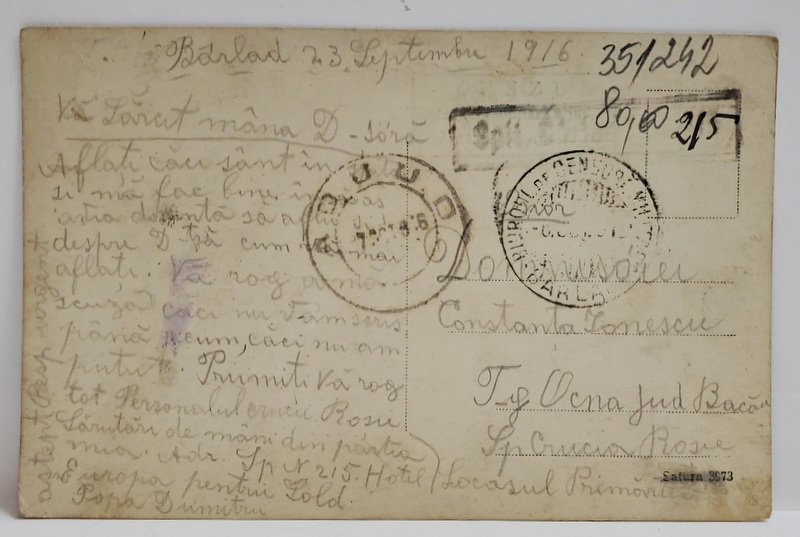 Bârlad 23 Septembrie 1916.
351242
80,60
215
Vă Sărut mâna D-soră
Aflați căci sânt în
și mă fac bine,
aria dorință să
despre D-tră cum vă mai
aflați. Vă rog a mă
scuză căci nu v'am scris
până acum, căci nu am
putut. Prumiti Vă rog
tot Personalul crucii Rosie
Sărutări de mâni din partia
mia. Adr. Sp N 215. Hotel
Europa pentru Sold.
Popa Dumitru
astept Rasp urgent
ADJUD
BIUROUL DE CENSURĂ
BARLAD
Domnisorei
Constanța Ionescu
Tg Ocna Jud Bacău
Sp Crucia Rosie
Locasul Primărie
Saturn 3973